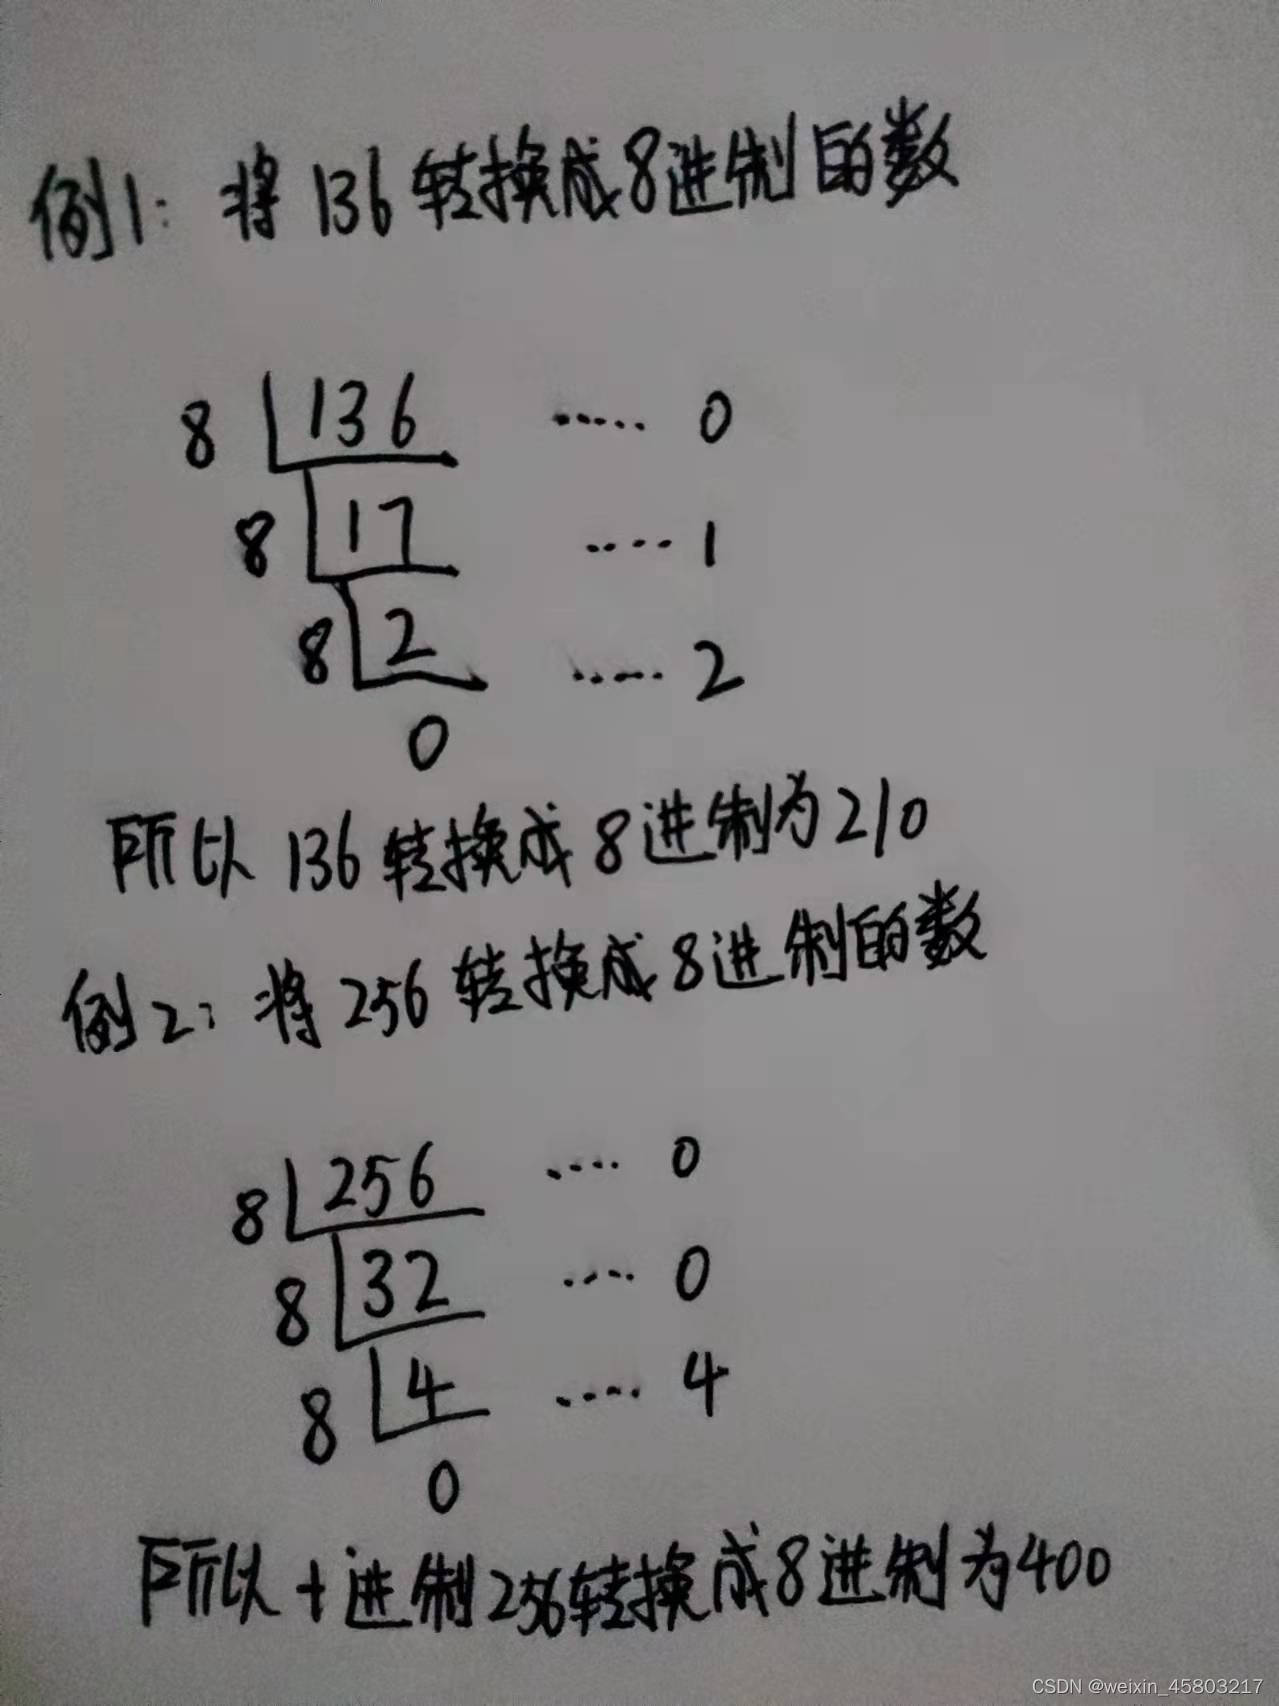 例1：将136转换成8进制的数
8 136 ...... 0
8 17 ..... 1
8 2 ...... 2
0
所以136转换成8进制为210
例2：将256转换成8进制的数
8 256 ..... 0
8 32 ..... 0
8 4 ...... 4
0
所以十进制256转换成8进制为400
CSDN @weixin_45803217